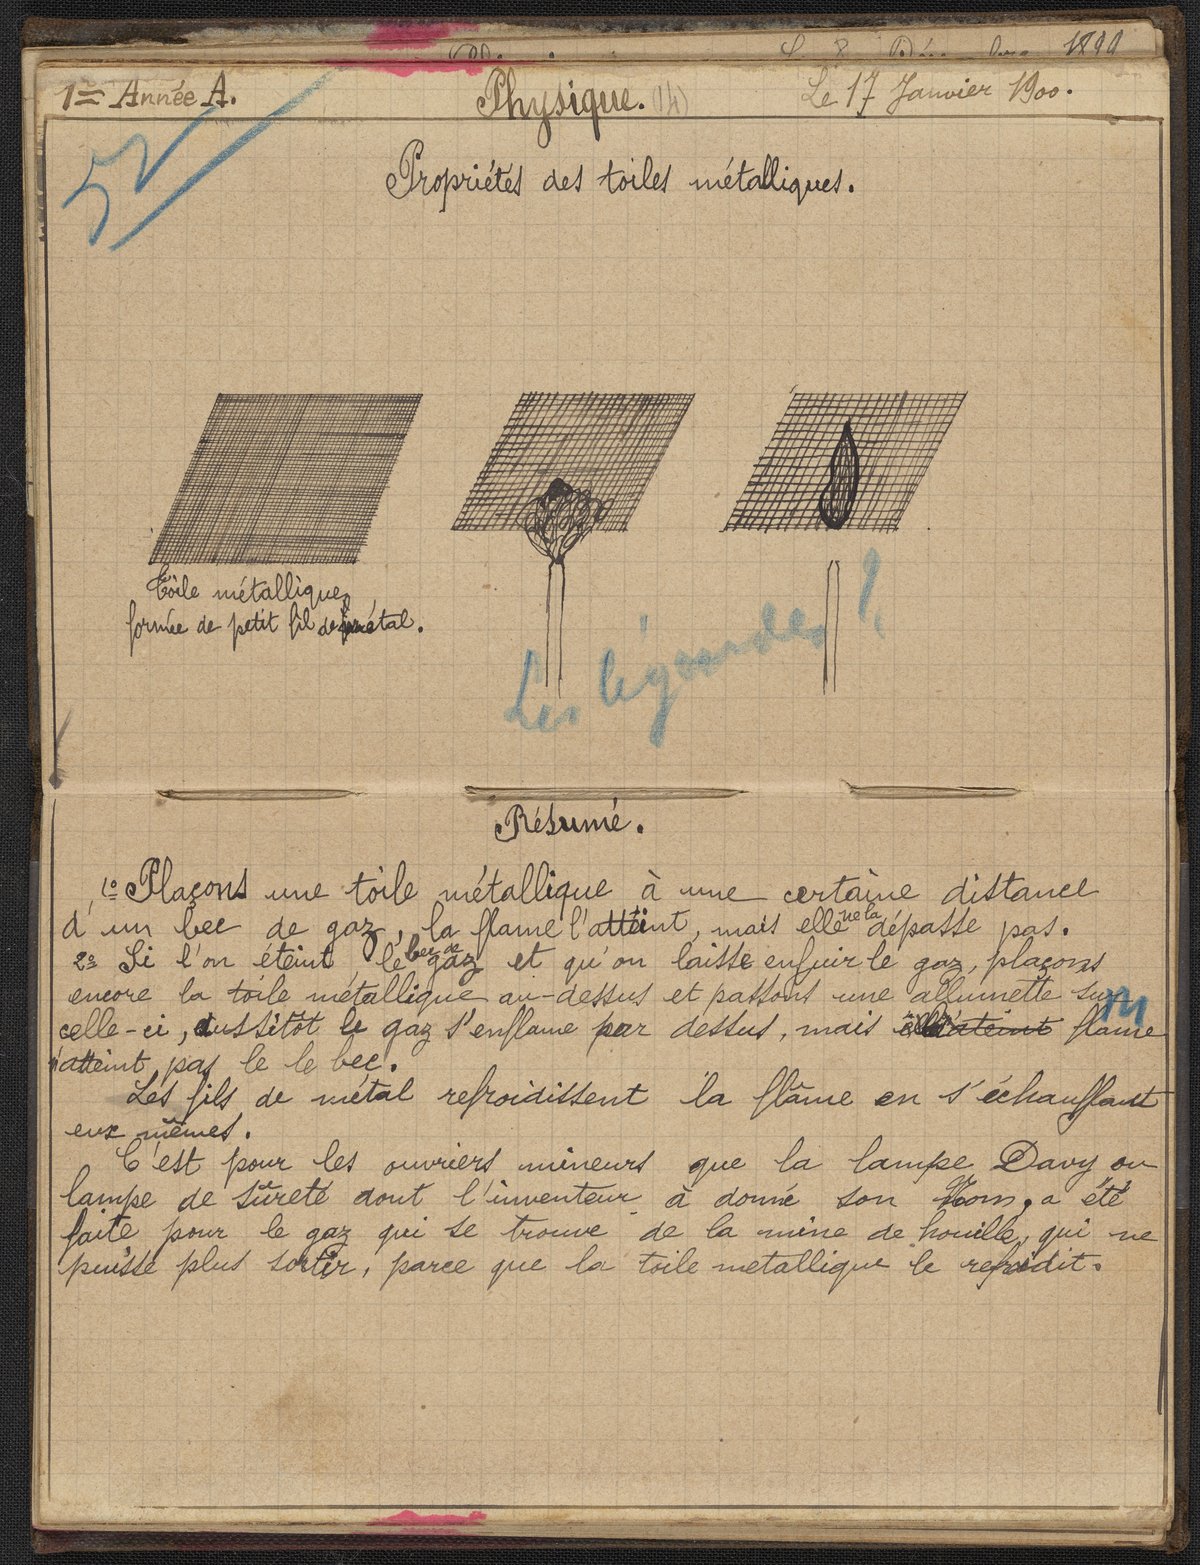 1899
1re Année A.
Physique. (14)
Le 17 Janvier 1900.
52
Propriétés des toiles métalliques.
Toile métallique,
formée de petit fil de métal.
Les légendes ?
Résumé.
1º Plaçons une toile métallique à une certaine distance
d'un bec de gaz, la flame l'atteint, mais elle ne la dépasse pas.
2º Si l'on éteint le bec de gaz et qu'on laisse enfuir le gaz, plaçons
encore la toile métallique au-dessus et passons une allumette sur
celle-ci, aussitôt le gaz s'enflame par dessus, mais flame
n'atteint pas le le bec.
Les fils de métal refroidissent la flâme en s'échauffant
eux mêmes.
C'est pour les ouvriers mineurs que la lampe Davy ou
lampe de sûreté dont l'inventeur à donné son Nom, a été
faite pour le gaz qui se trouve de la mine de houille, qui ne
puisse plus sortir, parce que la toile metallique le refroidit.